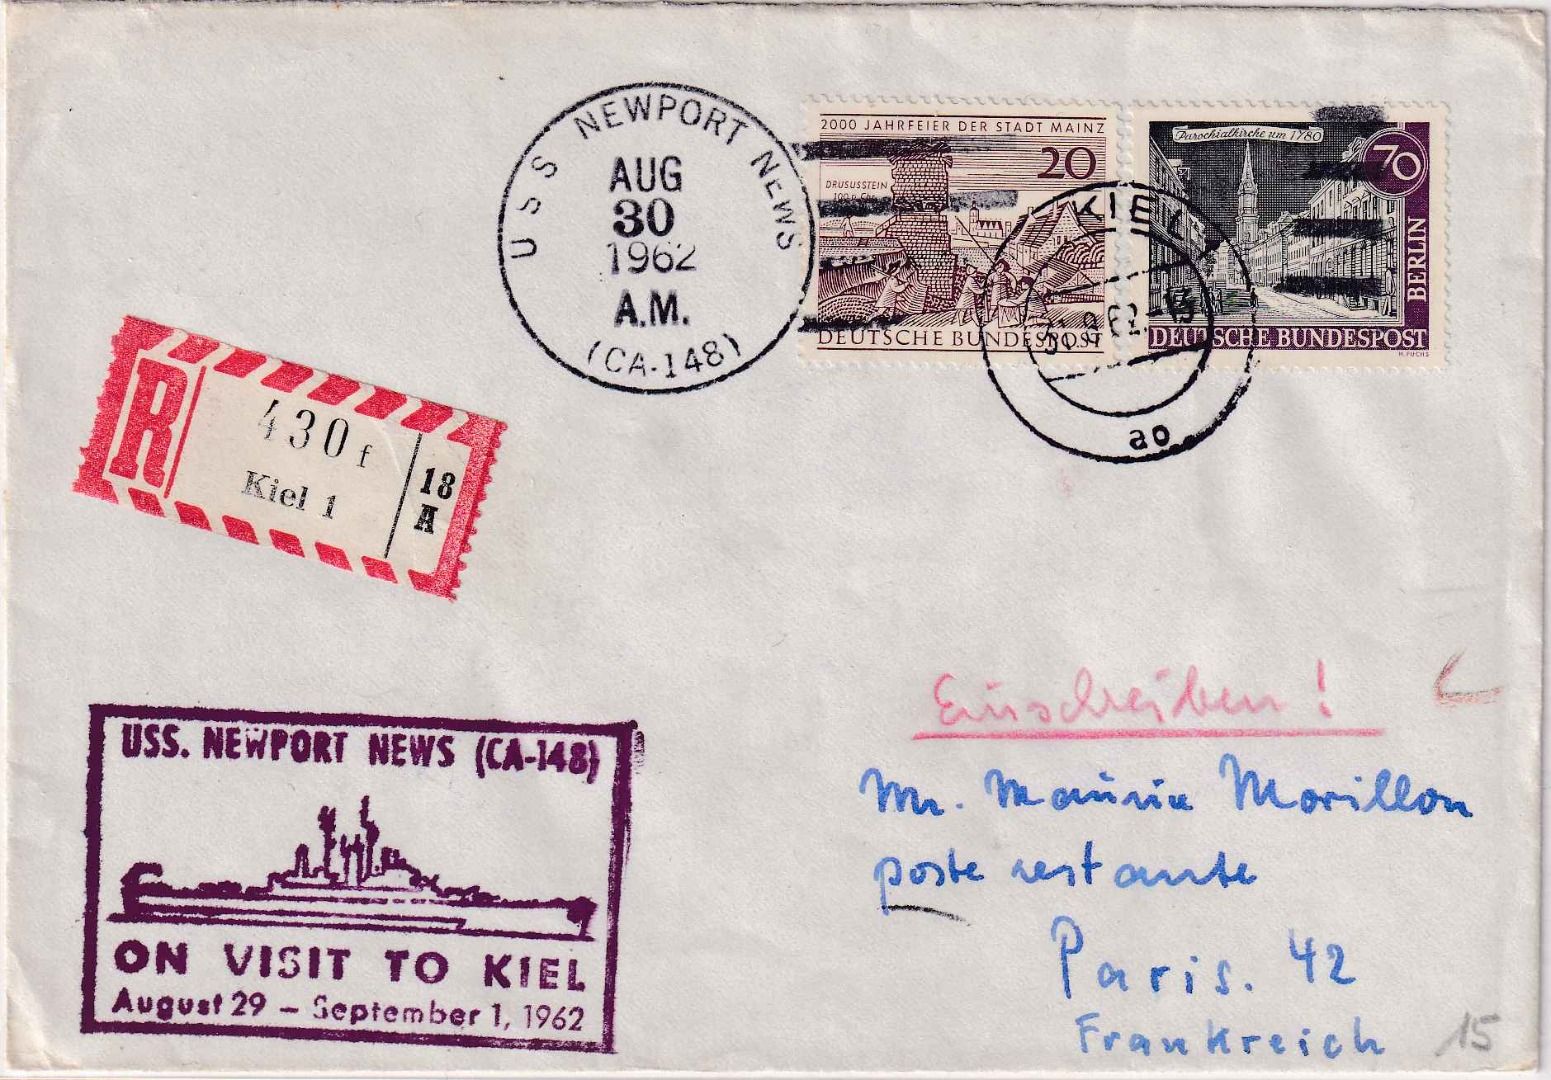 USS NEWPORT NEWS
AUG
30
1962
A.M.
(CA-148)
2000 JAHRFEIER DER STADT MAINZ
20
DRUSUSSTEIN
DEUTSCHE BUNDESPOST
Parochialkirche um 1780
70
BERLIN
DEUTSCHE BUNDESPOST
H. FUCHS
KIEL
31.8.62.-13
ao
R
430 f
Kiel 1
18
A
Einschreiben!
Mr. Maurice Morillon
poste restante
Paris. 42
Frankreich
15
USS. NEWPORT NEWS (CA-148)
ON VISIT TO KIEL
August 29 – September 1, 1962